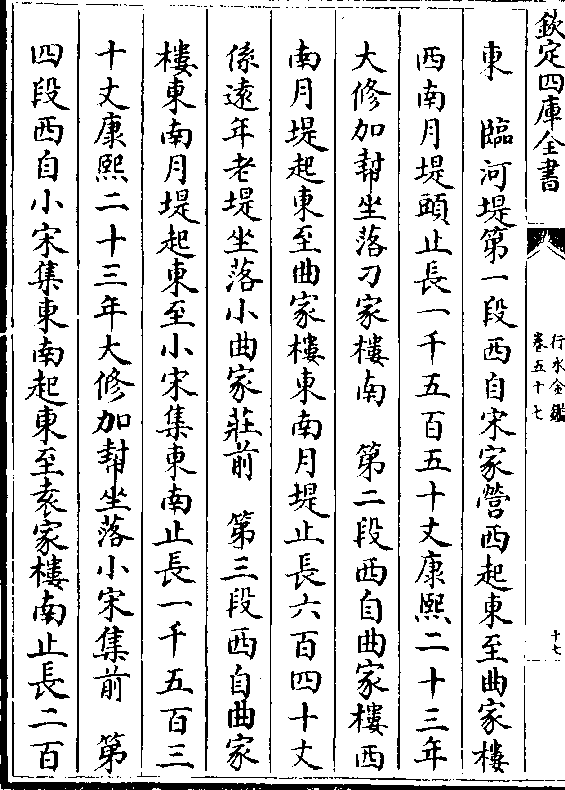 欽定四庫全書
行水金鑑
卷五十七
十七
東　臨河堤第一段西自宋家營西起東至曲家樓
西南月堤頭止長一千五百五十丈康熙二十三年
大修加幇坐落刁家樓南　第二段西自曲家樓西
南月堤起東至曲家樓東南月堤止長六百四十丈
係遠年老堤坐落小曲家莊前　第三段西自曲家
樓東南月堤起東至小宋集東南止長一千五百三
十丈康熙二十三年大修加幇坐落小宋集前　第
四段西自小宋集東南起東至袁家樓南止長二百